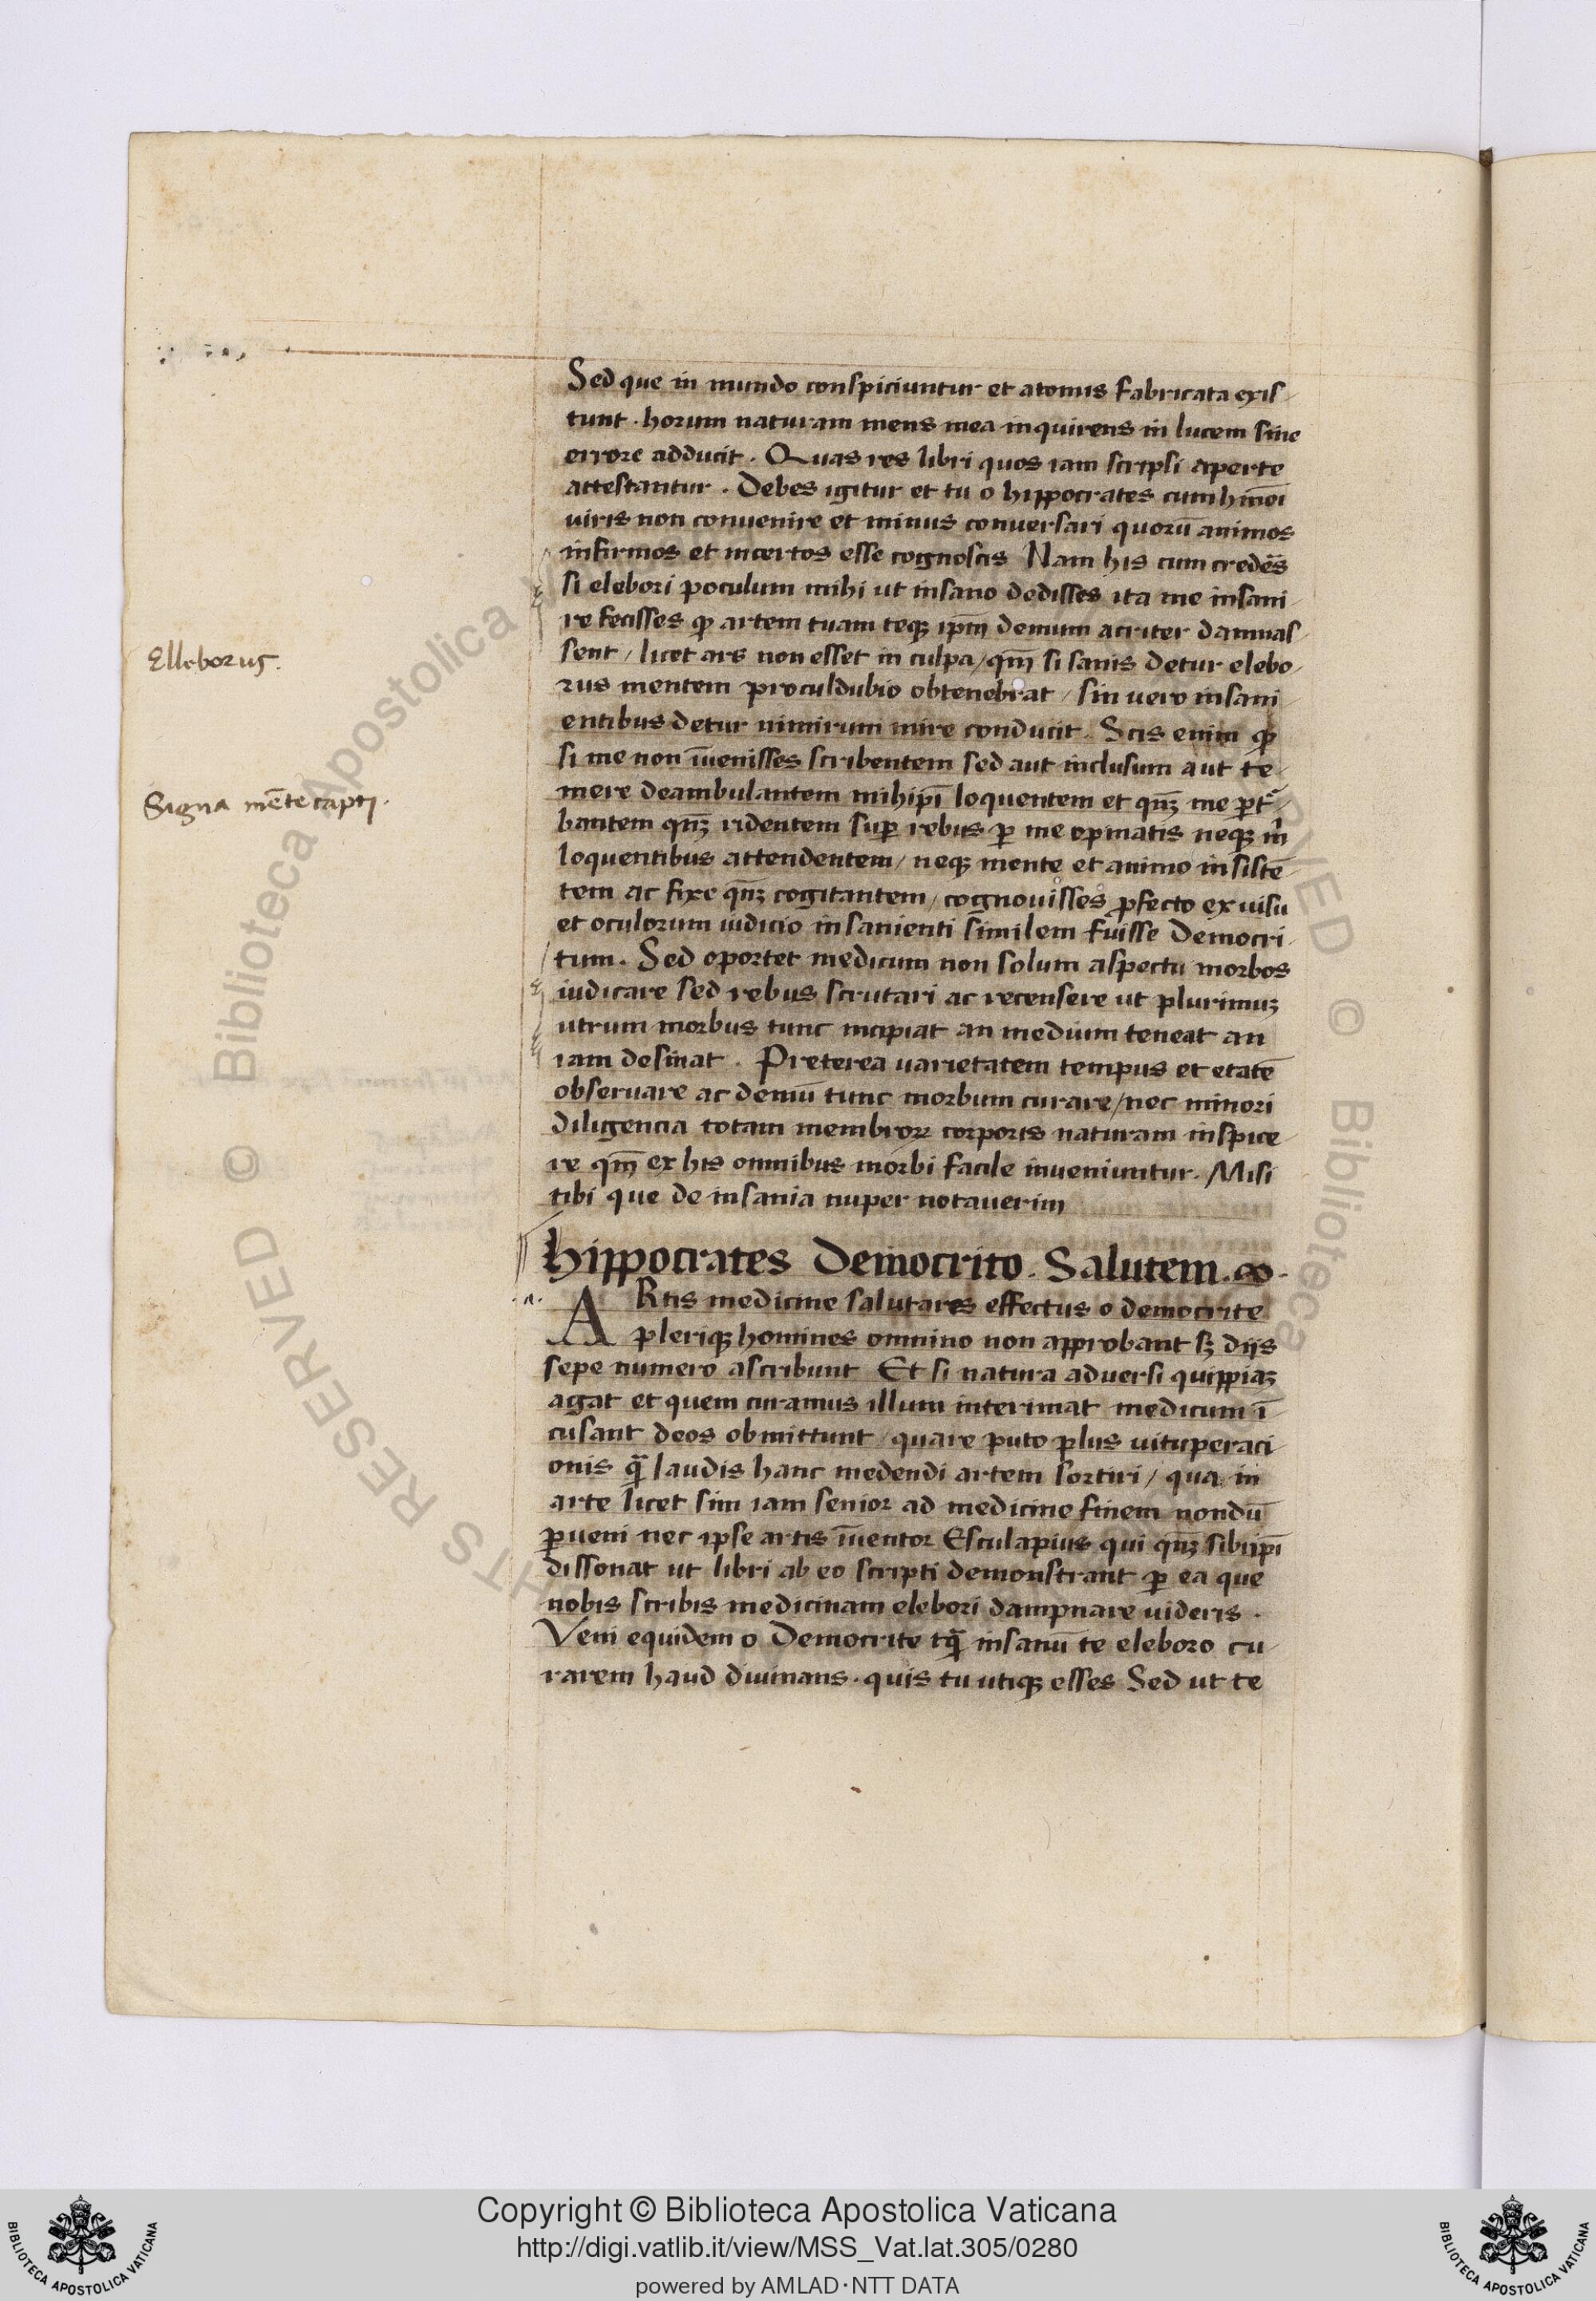 Sed que in mundo conspiciuntur et atomis fabricata exis-
tunt . horum naturam mens mea inquirens in lucem sine
errore adducit . Quas res libri quos iam scripsi aperte
attestantur . Debes igitur et tu o hippocrates cum hmōi
uiris non conuenire et minus conuersari quorū animos
infirmos et incertos esse cognoscis Nam his cum credēs
si elebori poculum mihi ut insano dedisses ita me insani-
re fecisses ꝙ artem tuam teqꝫ ipm̄ demum acriter damnas-
Elleborus.
sent / licet ars non esset in culpa / qm̄ si sanis detur elebo-
rus mentem proculdubio obtenebrat / sin uero insani-
entibus detur nimirum mire conducit . Scis enim ꝙ
si me non īuenisses scribentem sed aut inclusum aut te-
Signa mēte capti.
mere deambulantem mihipī loquentem et qn̄ꝫ me ꝑt-
bantem qn̄ꝫ ridentem suꝑ rebus ꝑ me opinatis neqꝫ m̄
loquentibus attendentem / neqꝫ mente et animo insistē-
tem ac fixe qn̄ꝫ cogitantem / cognouisses ꝓfecto ex uisu
et oculorum iudicio insanienti similem fuisse Democri-
tum . Sed oportet medicum non solum aspectu morbos
iudicare sed rebus scrutari ac recensere ut plurimuꝫ
utrum morbus tunc incipiat an medium teneat an
iam desinat . Preterea uarietatem tempus et etatē
obseruare ac demū tunc morbum curare / nec minori
diligencia totam membroꝝ corporis naturam inspice-
re qm̄ ex his omnibus morbi facile inueniuntur . Misi
tibi que de insania nuper notauerim
Hippocrates Democrito . Salutem .
.a.
ARtis medicine salutares effectus o democrite
pleriqꝫ homines omnino non approbant sꝫ diis
sepe numero ascribunt Et si natura aduersi quippiaꝫ
agat et quem curamus illum interimat medicum ī-
cusant deos obmittunt / quare puto plus uituperaci-
onis q̄ laudis hanc medendi artem sortiri / qua in
arte licet sim iam senior ad medicine finem nondū
ꝑueni nec ipse artis īuentor Esculapius qui qn̄ꝫ sibiipī
dissonat ut libri ab eo scripti demonstrant ꝑ ea que
nobis scribis medicinam elebori dampnare uideris .
Veni equidem o Democrite tq̄ insanū te eleboro cu-
rarem haud diuinans . quis tu utiqꝫ esses Sed ut te
Copyright © Biblioteca Apostolica Vaticana
http://digi.vatlib.it/view/MSS_Vat.lat.305/0280
powered by AMLAD·NTT DATA
BIBLIOTECA APOSTOLICA VATICANA
BIBLIOTECA APOSTOLICA VATICANA